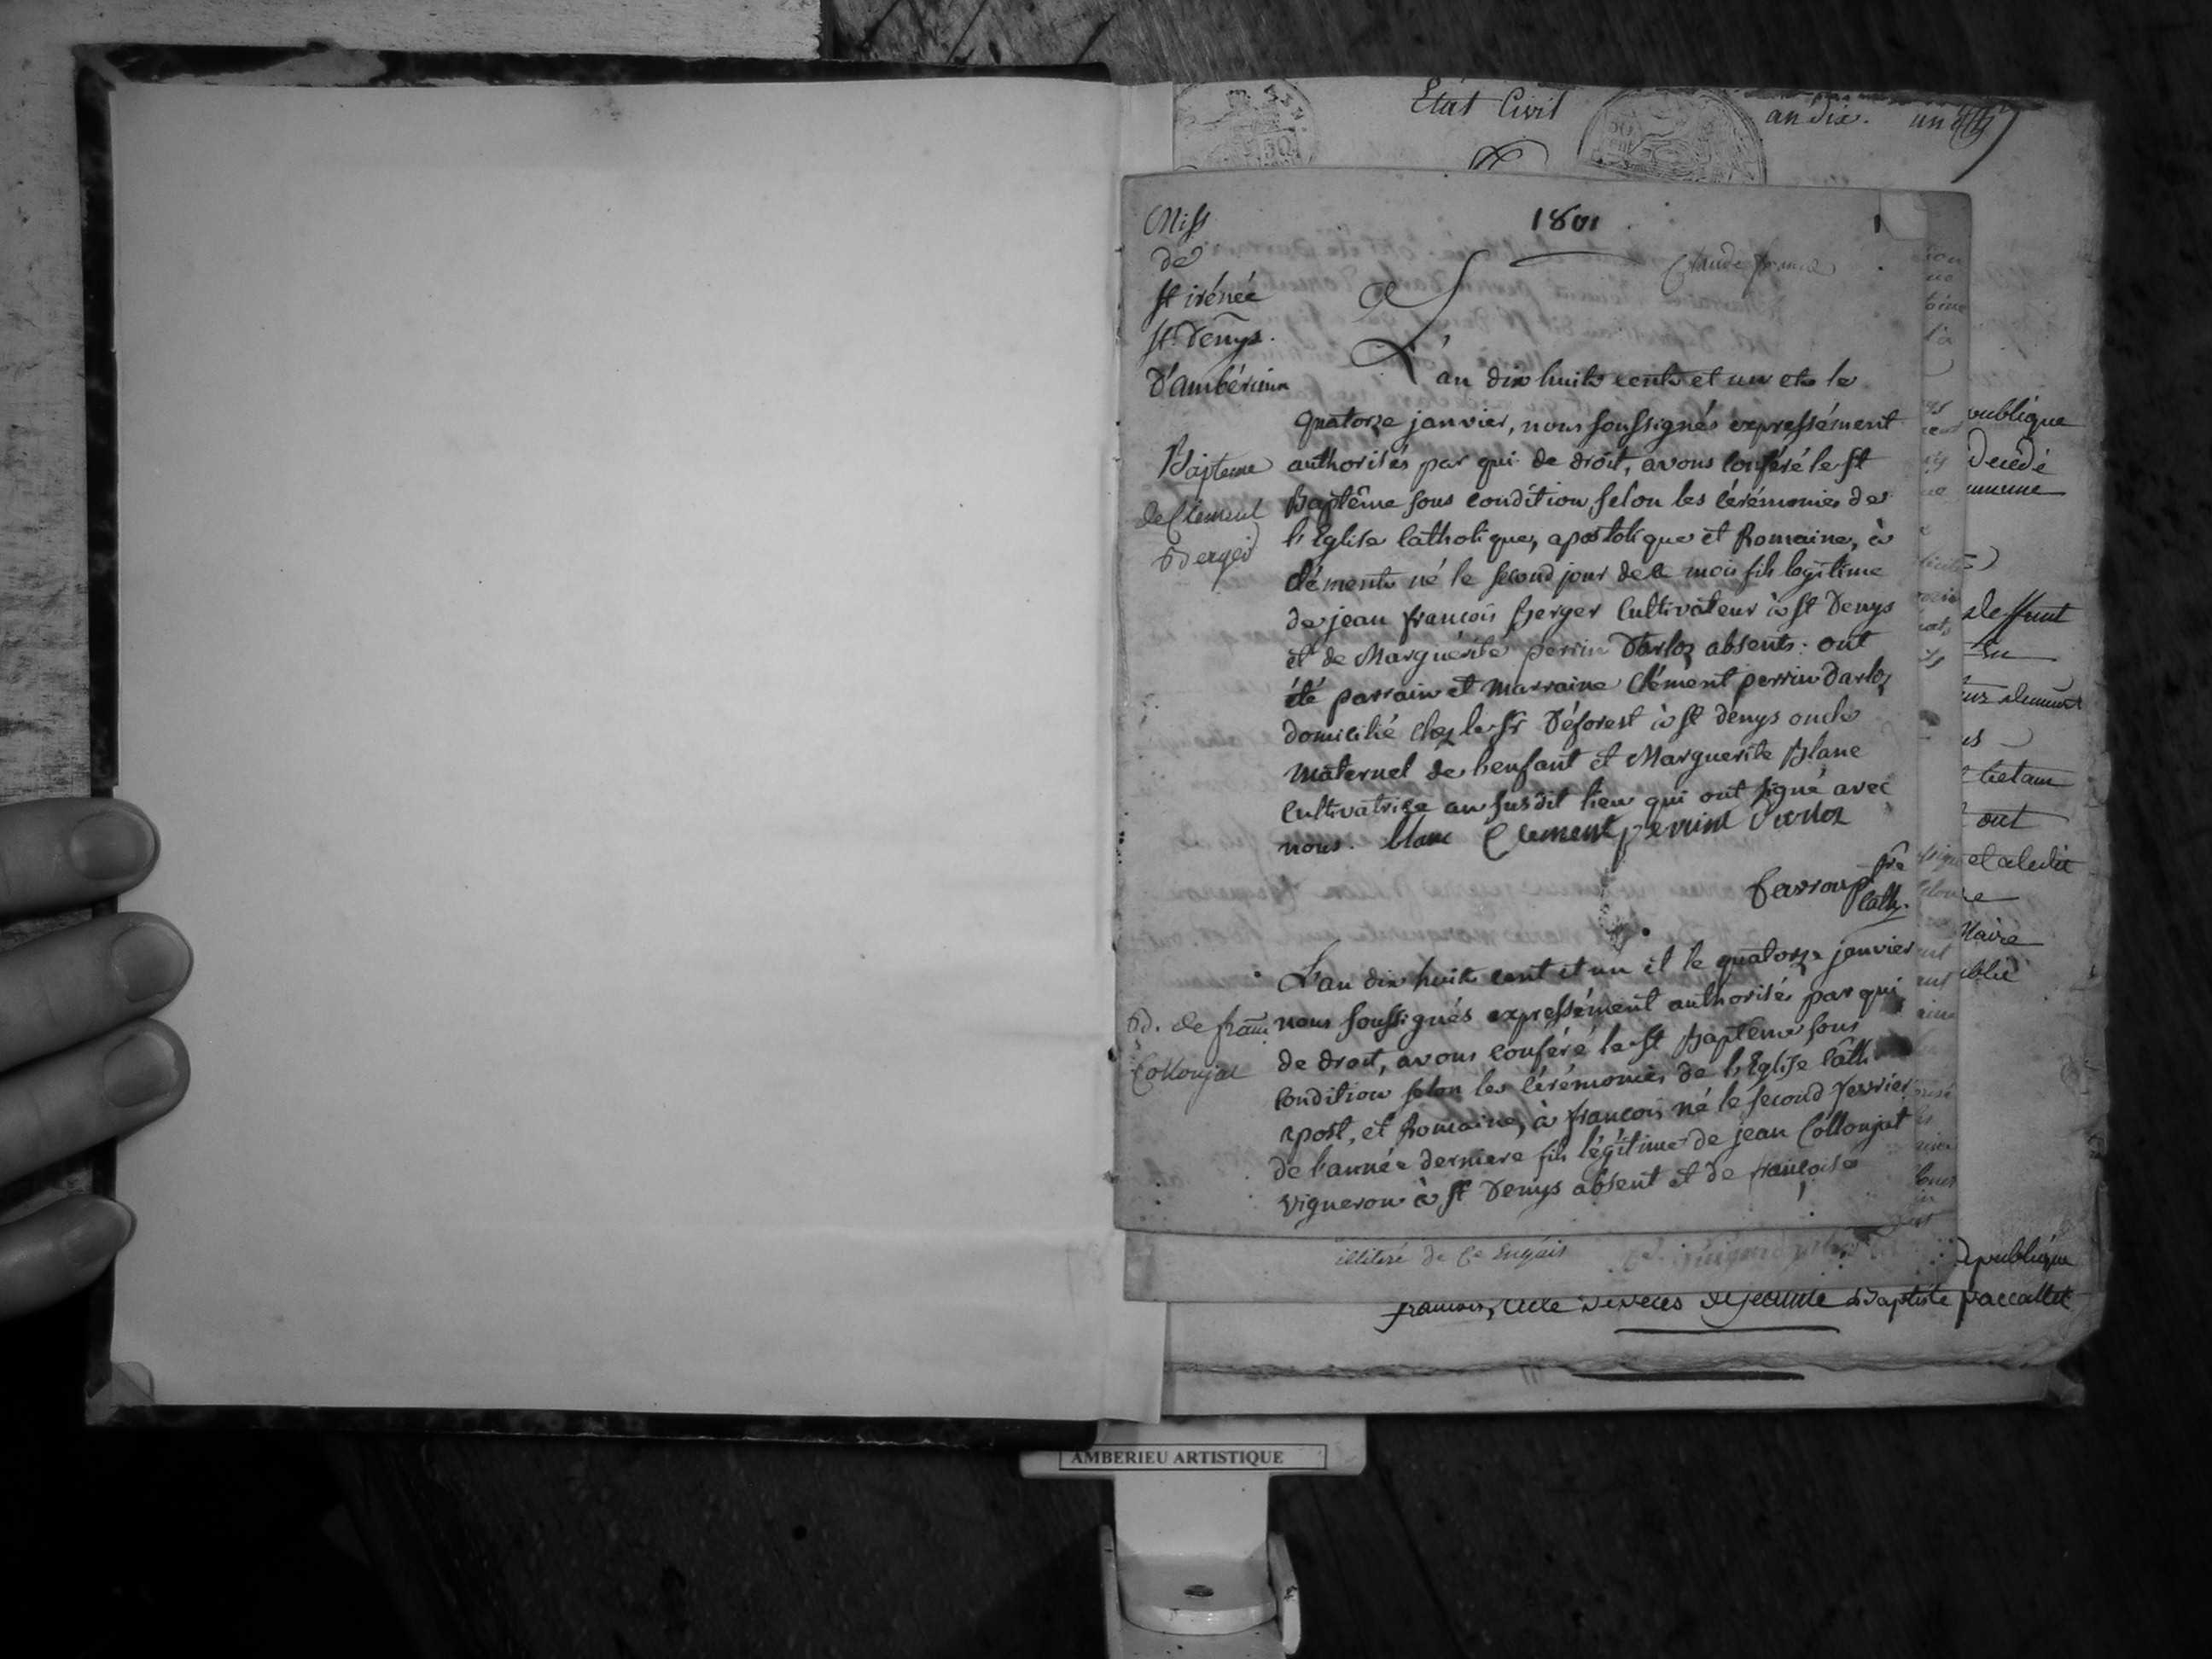 Etat Civil an dix. un
1801 1
Miss
de
st irénée
st Denys.
D'ambérieu
Claude
L'an dix huit cents et un et le
quatorze janvier, nous soussignés expressément
Bapteme
de Clement
Berger
authorisés par qui de droit, avons conféré le st
Baptême sous condition selon les cérémonies de
l'Eglise Catholique, apostolique et Romaine, à
Clément né le second jour de ce mois fils legitime
de jean françois Berger Cultivateur à st Denys
et de Marguerite perrin Darloz absents: ont
été parrain et Marraine Clément perrin darloz
domicilié chez le Sr Déforest à st denys oncle
maternel de l'enfant et Marguerite Blanc
Cultivatrice au susdit lieu qui ont signé avec
nous. blanc Clement perrin Darloz
ptre
cath.
B. de fran
Collonjat
L'an dix huit cent et un et le quatorze janvier
nous soussignés expressément authorisés par qui
de droit, avons conféré le st Baptême sous
condition selon les cérémonies de l'Eglise Câth
apost, et Romaine, à françois né le second fevrier
de l'année derniere fils légitime de jean Collonjat
vigneron à st Denys absent et de françoise
publique
Decédé
deffunt
ont
et aledit
Maire
illiteré de Ce
publique
francois, acte de deces de jeanne Baptiste paccallet
AMBERIEU ARTISTIQUE